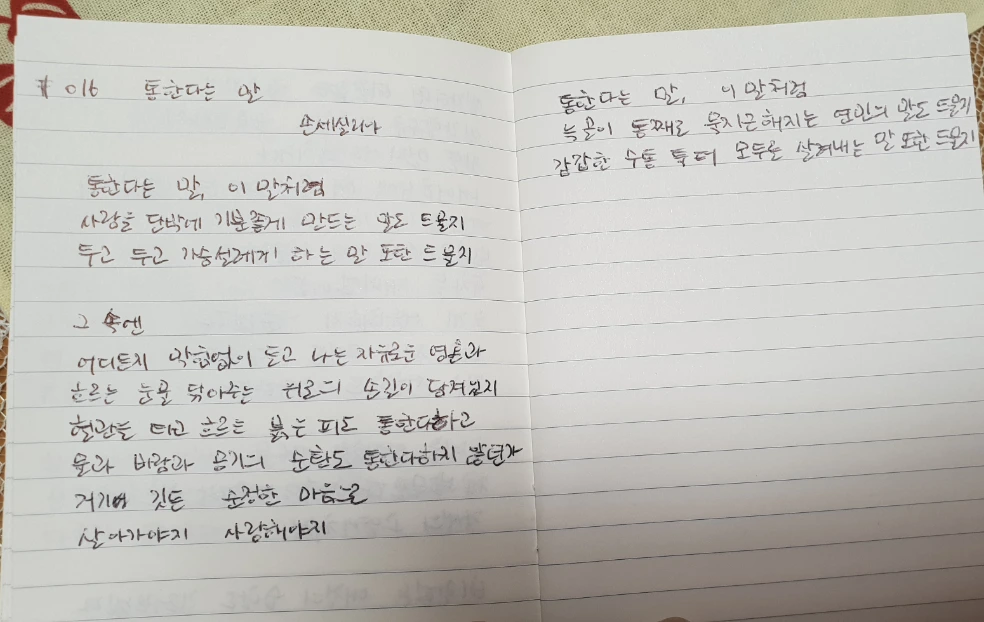 # 016 통한다는 말
손세실리아
통한다는 말, 이 말처럼
사람을 단박에 기분좋게 만드는 말도 드물지
두고 두고 가슴설레게 하는 말 또한 드물지
그 속엔
어디든지 막힘없이 들고 나는 자유로운 영혼과
흐르는 눈물 닦아주는 위로의 손길이 담겨있지
혈관을 타고 흐르는 붉은 피도 통한다하고
물과 바람과 공기의 순환도 통한다하지 않던가
거기에 깃든 순정한 마음으로
살아가야지 사랑해야지
통한다는 말, 이 말처럼
늑골이 통째로 뭉지근해지는 연민의 말도 드물지
갑갑한 숨통 툭 터 모두를 살려내는 말 또한 드물지